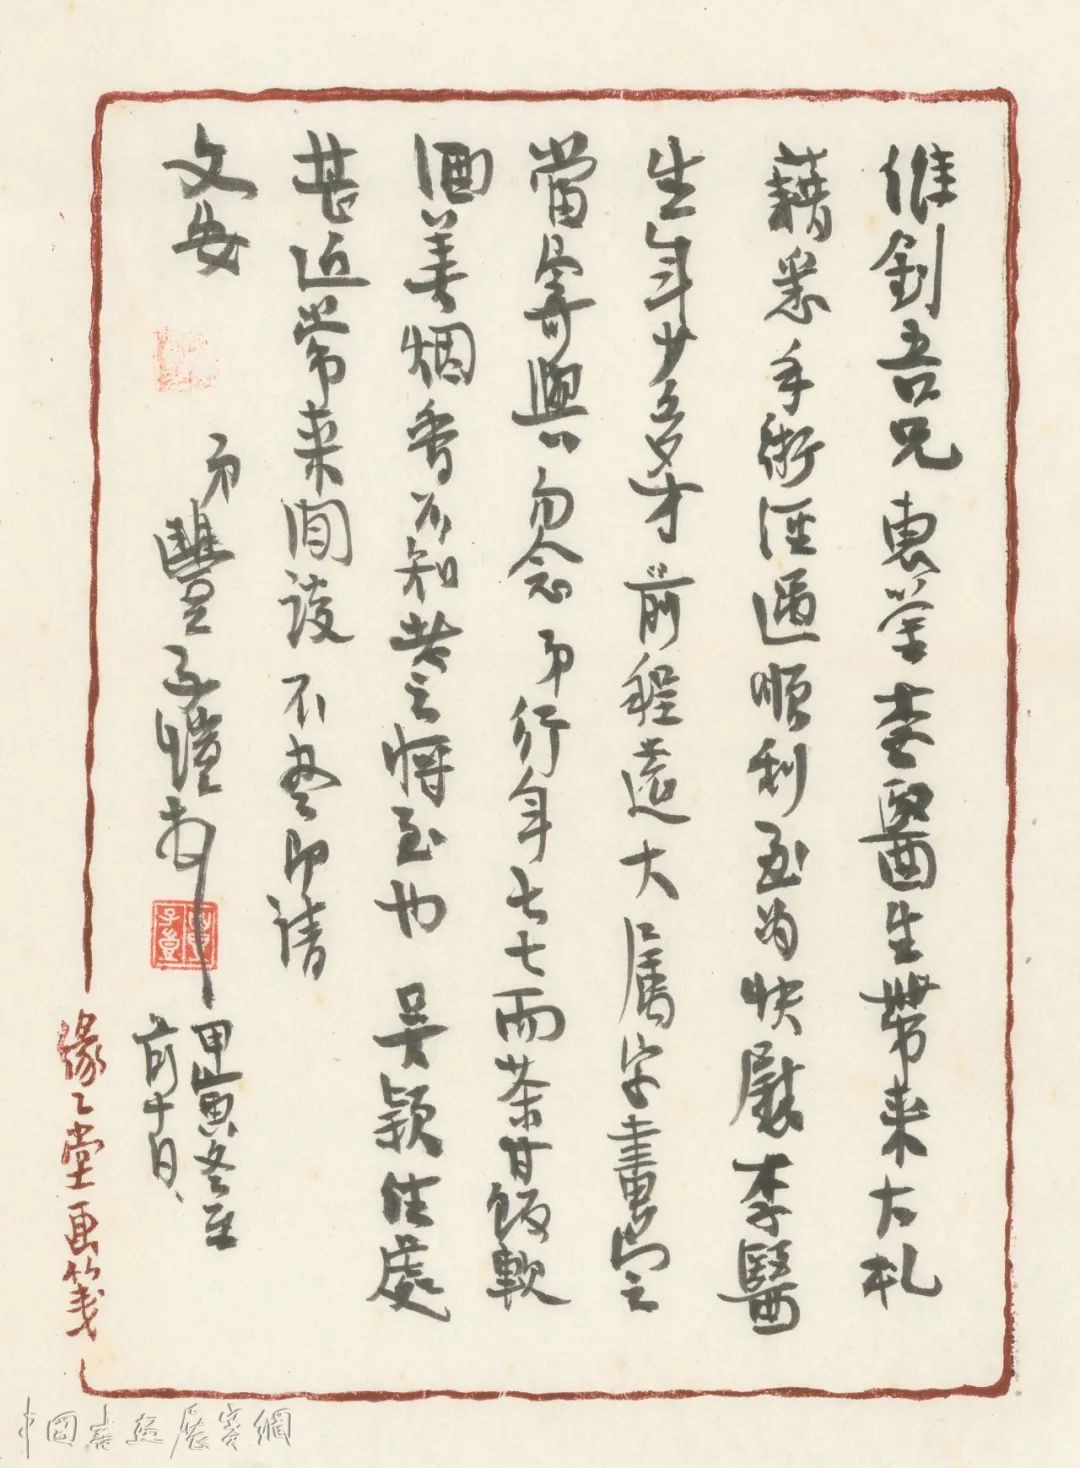 維釗吾兄惠鉴李醫生帶来大札
藉悉手術經過順利至为快慰李醫
生年少多才前程遠大属字畫之
當寄與勿念弟行年七七而茶甘飯軟
酒美烟香不知老之將至也吴颖住處
甚近常来閒談不尽即請
文安
弟豐子愷叩
甲寅冬至
前十日
緣〻堂画箋
中國書法展賽網